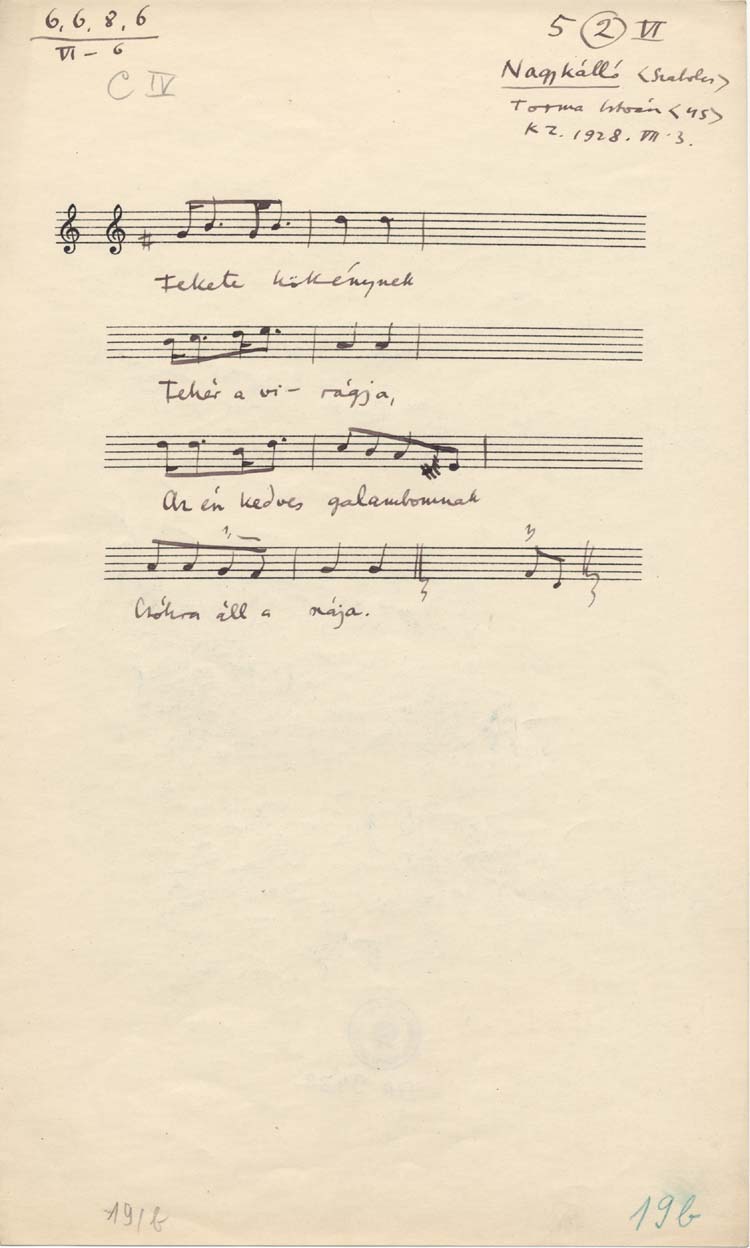 6, 6, 8, 6
VI – 6
C IV
5 2 VI
Nagykálló <Szabolcs>
Torma István <45>
K Z. 1928. VII. 3.
Fekete kökénynek
Fehér a vi- rágja,
Az én kedves galambomnak
Csókra áll a szája.
19/b
19b